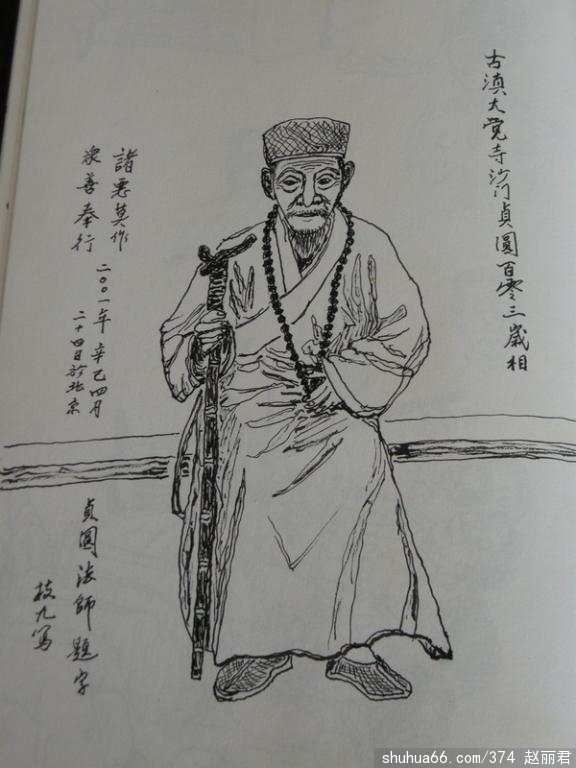 古滇大覺寺沙门貞圓百零三歲相
諸恶莫作
衆善奉行
二〇〇一年辛巳四月
二十四日於北京
貞圓法師題字
枝九写
shuhua66.com/374 赵丽君